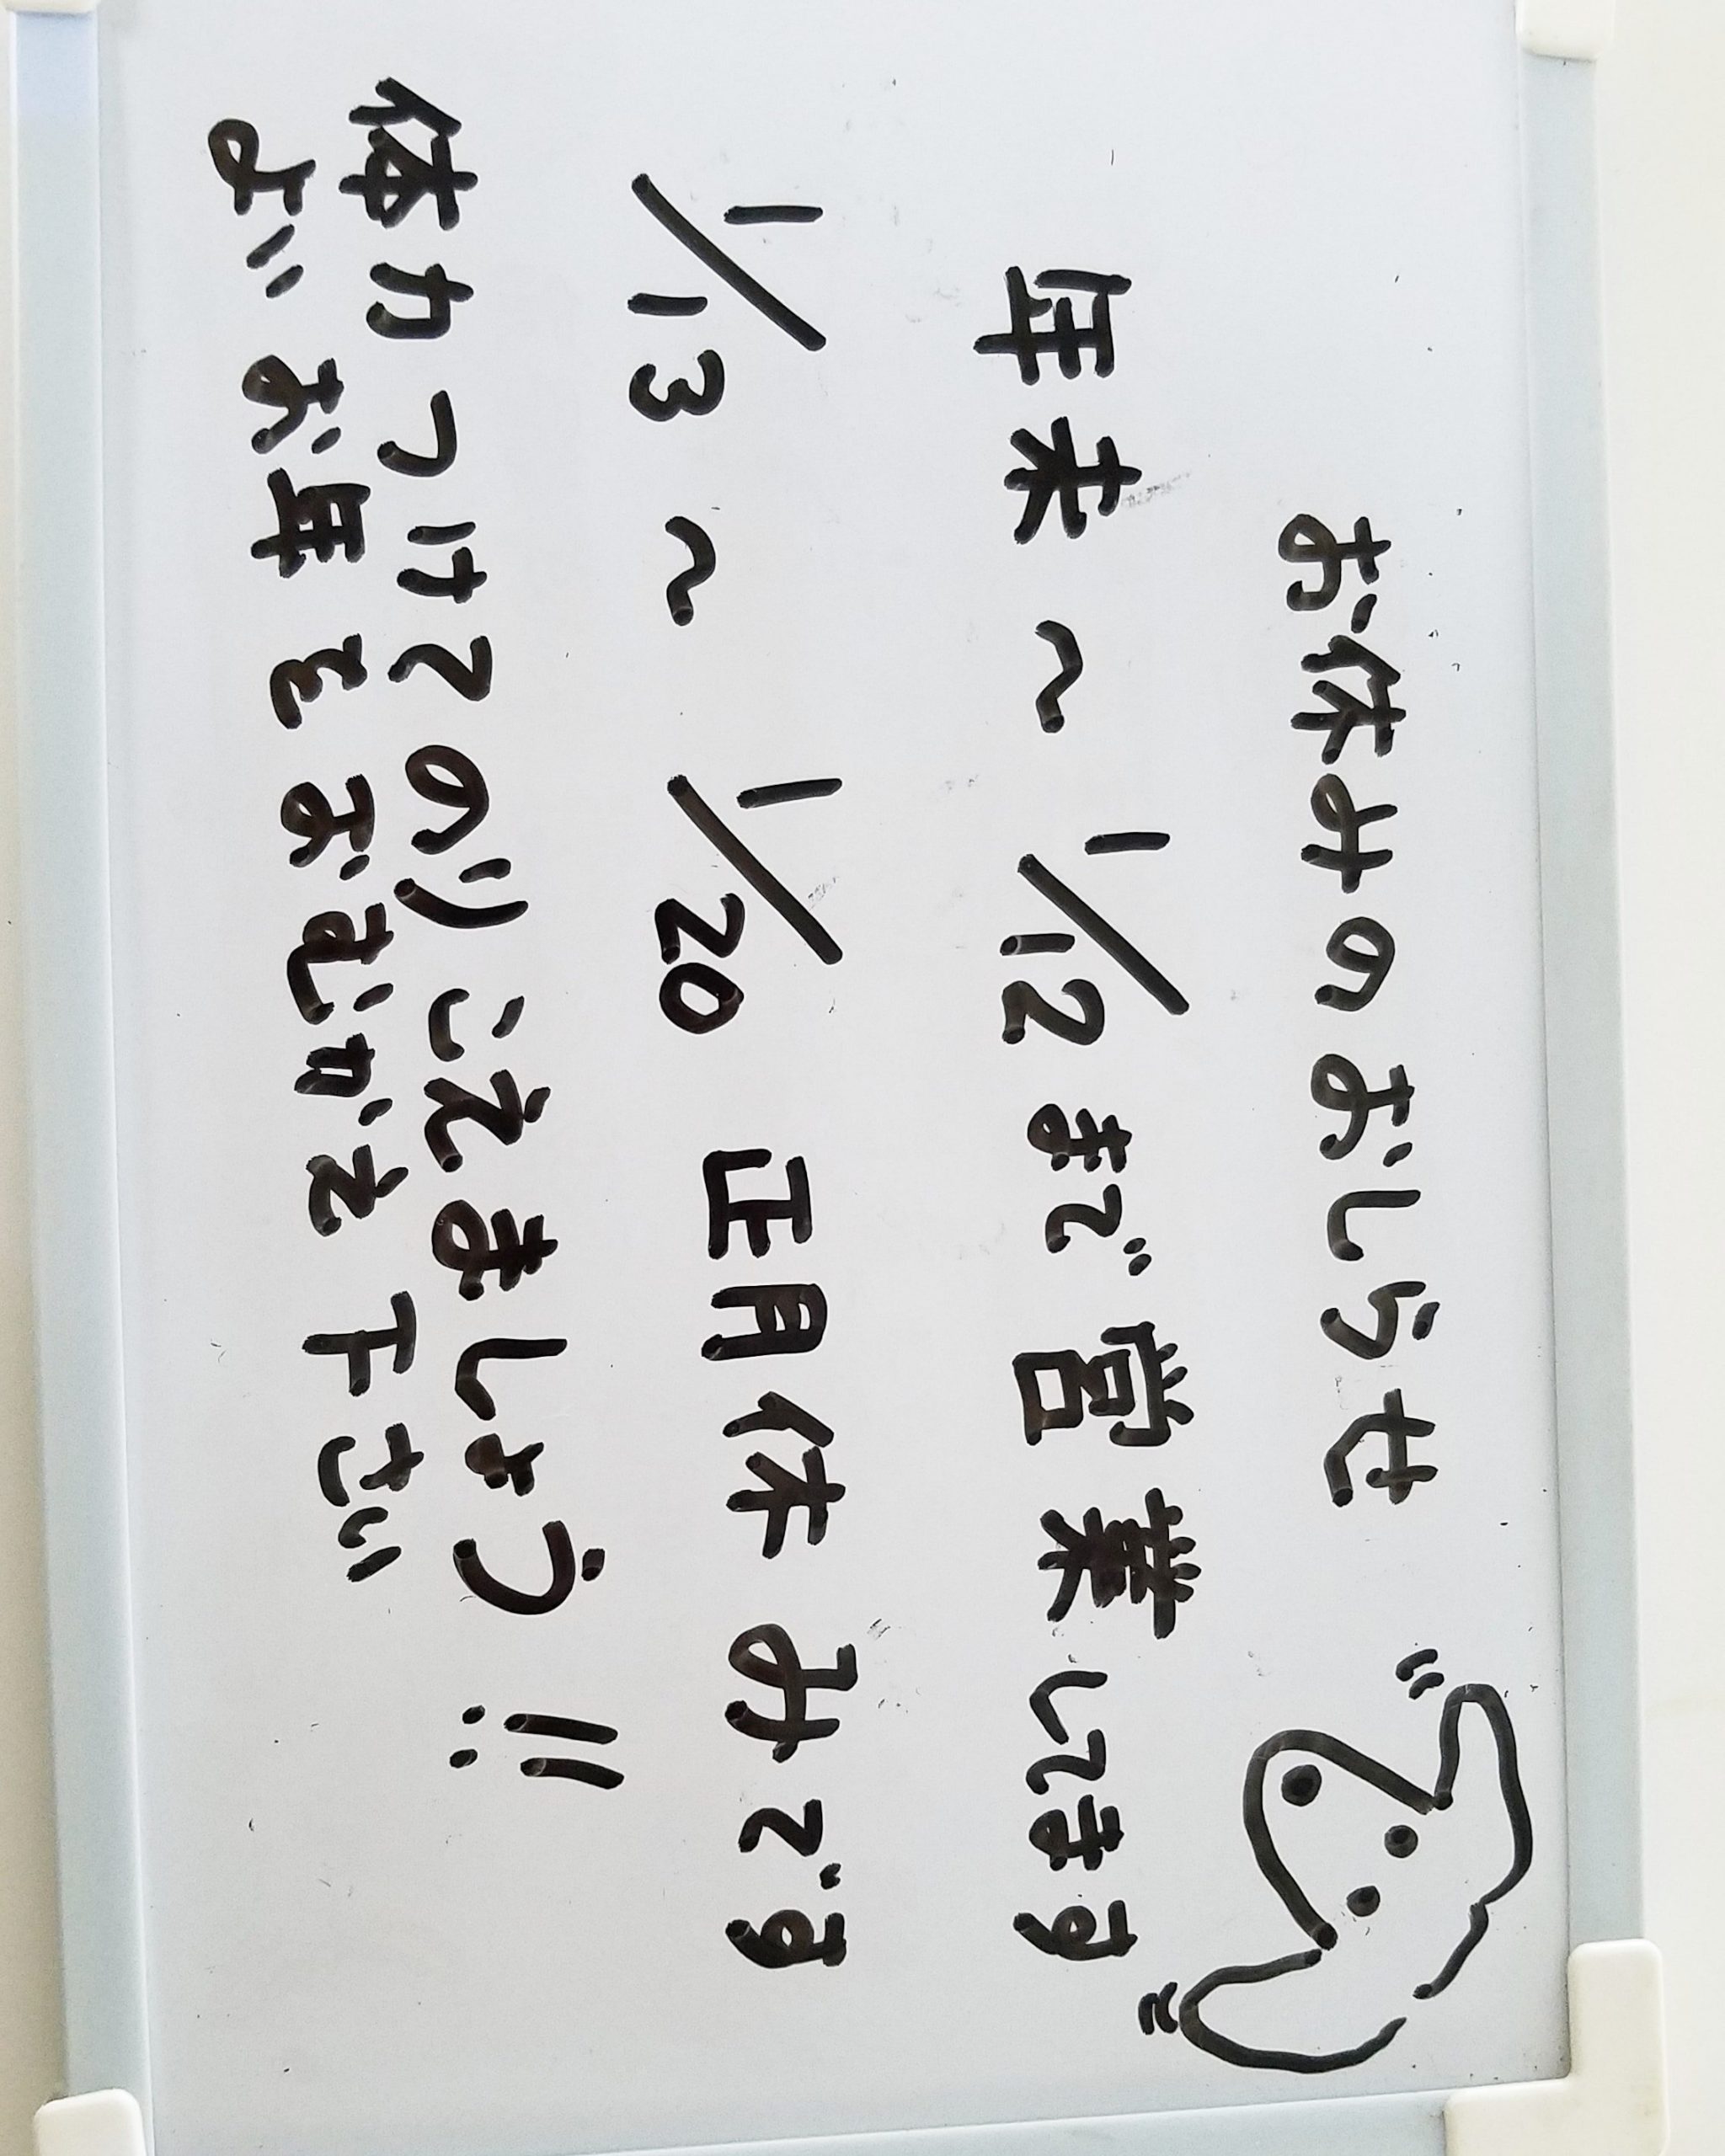 お休みのおしらせ
年末〜1/12まで営業してます
1/13〜1/20 正月休みです
体力つけてのりこえましょう!!
よいお年をおむかえ下さい